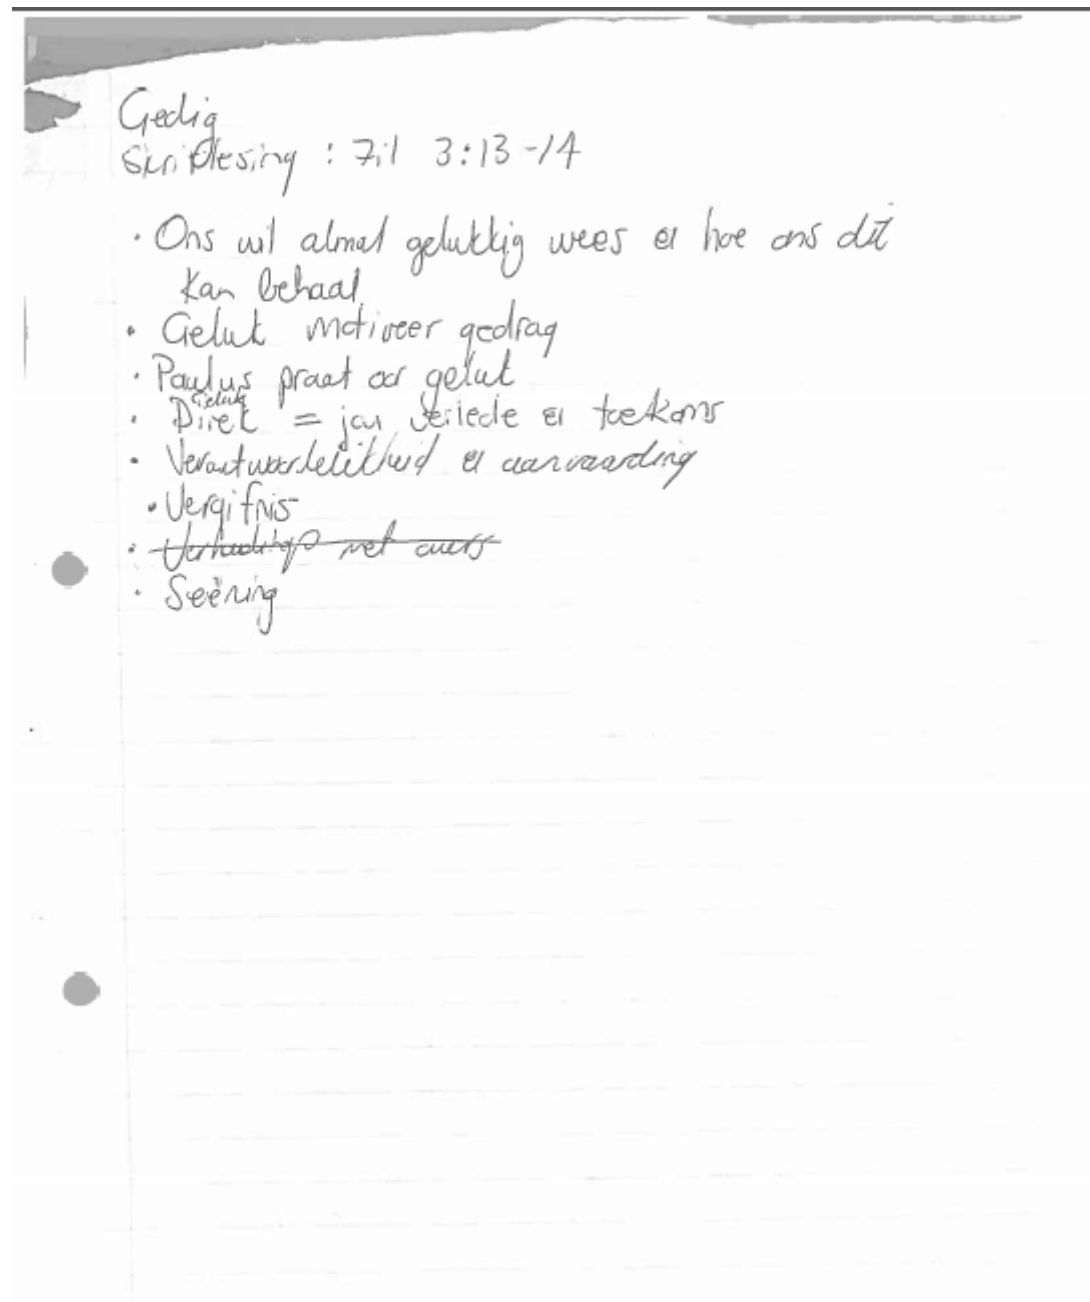 Gedig
Skriflesing : Fil 3:13-14
· Ons wil almal gelukkig wees en hoe ons dit
kan behaal
· Geluk motiveer gedrag
· Paulus praat oor geluk
Geluk
· Direk = jou verlede en toekoms
· Verantwoordelikheid en aanvaarding
· Vergifnis
· met ouers
· Seëning